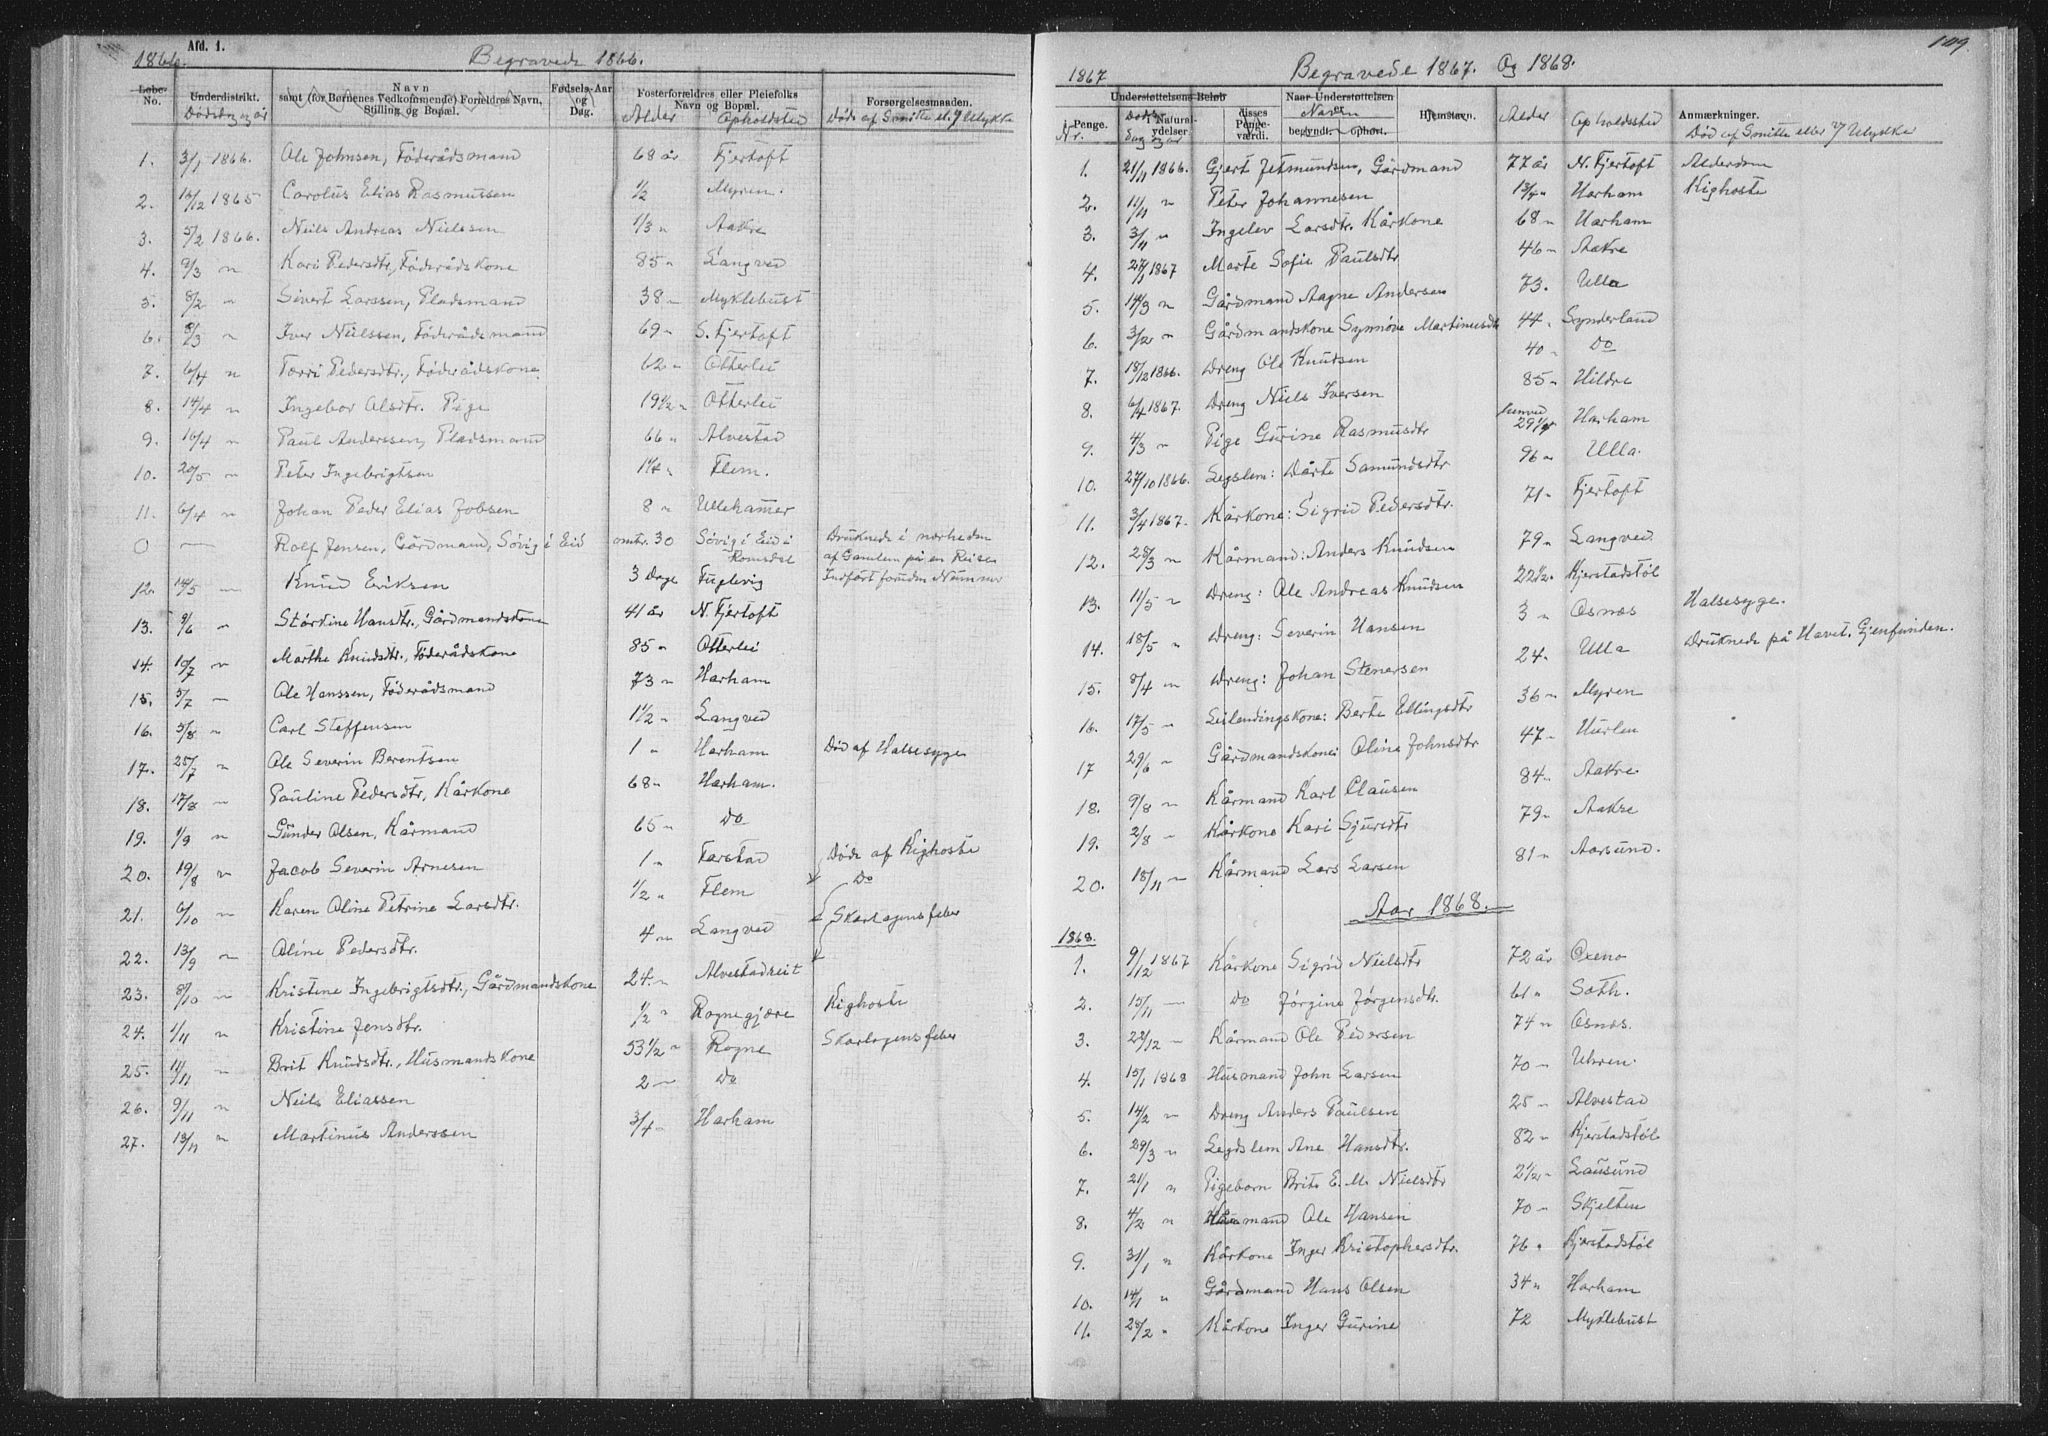 Afd. 1.
1866. Begravede 1866.
Løbe-No. Underdistrikt. Navn samt (for Børnenes Vedkommende) Forældres Navn, Stilling og Bopæl. Fødsels-Aar og Dag. Fosterforældres eller Pleiefolks Navn og Bopæl. Forsørgelsesmaaden.
Alder Opholdsted Død af Smitte el. Ulykke
1. 3/1 1866. Ole Johnsen, Føderådsmand 68 år Fjertoft
2. 12/12 1865 Carolus Elias Rasmussen 1/2 Myren.
3. 5/2 1866. Neils Andreas Nielssen 1/3 " Aakre
4. 9/3 " Kari Pedersdtr, Føderådskone 85 " Langved
5. 8/2 " Sivert Larssen, Pladsmand 38 " Myklebust
6. 8/3 " Iver Neilssen, Føderådsmand 69 " S. Fjertoft
7. 6/4 " Pedersdtr., Føderådskone. 62 " Otterlei
8. 14/4 " Ingebor Olsdtr. Pige 19 1/2 " Otterlei
9. 16/4 " Paul Anderssen, Pladsmand 66 " Alvestad
10. 20/5 " Peter Ingebrigtsen 1 1/4 " Flem.
11. 6/4 " Johan Peder Elias Jobsen 8 " Ullehamer
0 — Rolf Jensen, Gårdmand, Søvig i Eid omtr. 30 Søvig i Eid i Romsdal Druknede i nærheden af Gamlem på en Reise
12. 14/5 — Knud Eriksen 3 Dage Fuglevig Indført foruden Nummer
13. 9/6 " Størkine Hansdtr., Gårdmandskone 41 år N. Fjertoft
14. 10/7 " Marthe Knudsdtr., Føderådskone 85 " Otterlei
15. 5/7 — Ole Hanssen, Føderådsmand 73 " Harham
16. 5/8 " Carl Steffensen 1 1/2 " Langved
17. 25/7 " Ole Severin Berentsen 1 " Harham Død af Halsesyge
18. 17/8 " Pauline Pedersdtr, Kårkone 68 " Harham.
19. 1/9 " Gunder Olsen, Kårmand 65 " Do
20. 19/8 " Jacob Severin Arnesen 1 " Farstad Døde af Kighoste
21. 6/10 " Karen Oline Petrine Larsdtr. 1/2 " Flem Do
22. 13/9 " Oline Pedersdtr. 4 " Langved Skarlagensfeber
23. 8/10 " Kristine Ingebrigtsdtr., Gårdmandskone 24 " Alvestadreit
24. 1/11 " Kristine Jensdtr. 1/2 " Rognegjære Kighoste
25. 11/11 " Brit Knudsdtr., Husmandskone 53 1/2 " Rogne Skarlagensfeber
26. 9/11 " Neils Eliassen 2 — Do
27. 13/11 " Martinus Anderssen 3/4 " Harham
149
1867 Begravede 1867. Og 1868.
Understøttelsens Beløb Naar Understøttelsen
Penge. Natural-ydelser disses Penge-værdi. begyndt. ophørt. Hjemstavn. Anmærkninger.
Nr. Navn Alder Opholdssted Død af Smitte eller Ulykke
1. 21/11 1866. Gjert Jetmundsen, Gårdmand 77 år N. Fjertoft Alderdom
2. 11/11 " Peter Johannesen 13/4 " Harham Kighoste
3. 3/11 " Ingelev Larsdtr. Kårkone 68 " Harham
4. 27/1 1867 Marte Sofie Paulsdtr 46 " Aakre
5. 14/3 " Gårdmand Aagne Andersen 73. Ulla
6. 3/2 " Gårdmandskone Synnøve Martinusdtr 44 " Synderland
7. 18/12 1866. Dreng Ole Knudsen 40 " Do
8. 6/4 1867. Dreng Niels Iversen 85 " Hildre
9. 4/3 " Pige Gurine Rasmusdtr henved 29 1/4 Harham
10. 27/10 1866. Legslem: Dårte Samundsdtr 96 " Ulla.
11. 3/4 1867. Kårkone: Sigrid Pedersdtr. 71 " Fjertoft
12. 28/3 " Kårmand: Anders Knudsen 79 " Langved
13. 11/5 " Dreng: Ole Andreas Knudsen 22 1/2 " Kjerstadstøl
14. 18/5 " Dreng: Severin Hansen 3 " Osnæs Halsesyge.
15. 8/4 " Dreng: Johan Stenersen 24 " Ulla Druknede på Havet. Gjenfunden.
16. 17/5 " Leilendingskone: Berte Ellingsdtr 36 " Myren
17 29/6 " Gårdmandskone: Oline Johnsdtr 47 " Hurlen
18. 9/8 " Kårmand Karl Clausen 84 " Aakre.
19. 2/8 " Kårkone Kari Sjursdtr 79 " Aakre
20. 18/11 " Kårmand Lars Larsen 81 " Aarsund.
Aar 1868.
1868.
1. 9/12 1867 Kårkone Sigrid Nielsdtr 72 år Oxenø
2. 15/11 — Do Jørgine Jørgensdtr. 61 " Søth.
3. 22/12 " Kårmand Ole Pedersen 74 " Osnæs.
4. 15/1 1868 Husmand John Larsen 70 " Uhren.
5. 14/2 " Dreng Anders Paulsen 25 " Alvestad
6. 29/3 " Legdslem Ane Hansdtr. 82 " Kjerstadstøl
7. 21/1 " Pigebarn Brite E. M. Nielsdtr 2 1/2 " Lausund
8. 4/2 " mand Ole Hansen 70 " Skjelten
9. 31/1 " Kårkone Inger Kristophersdtr. 76 " Kjerstadstøl
10. 14/1 " Gårdmand Hans Olsen 34 " Harham
11. 28/2 " Kårkone Inger Gurine 72 Myklebust